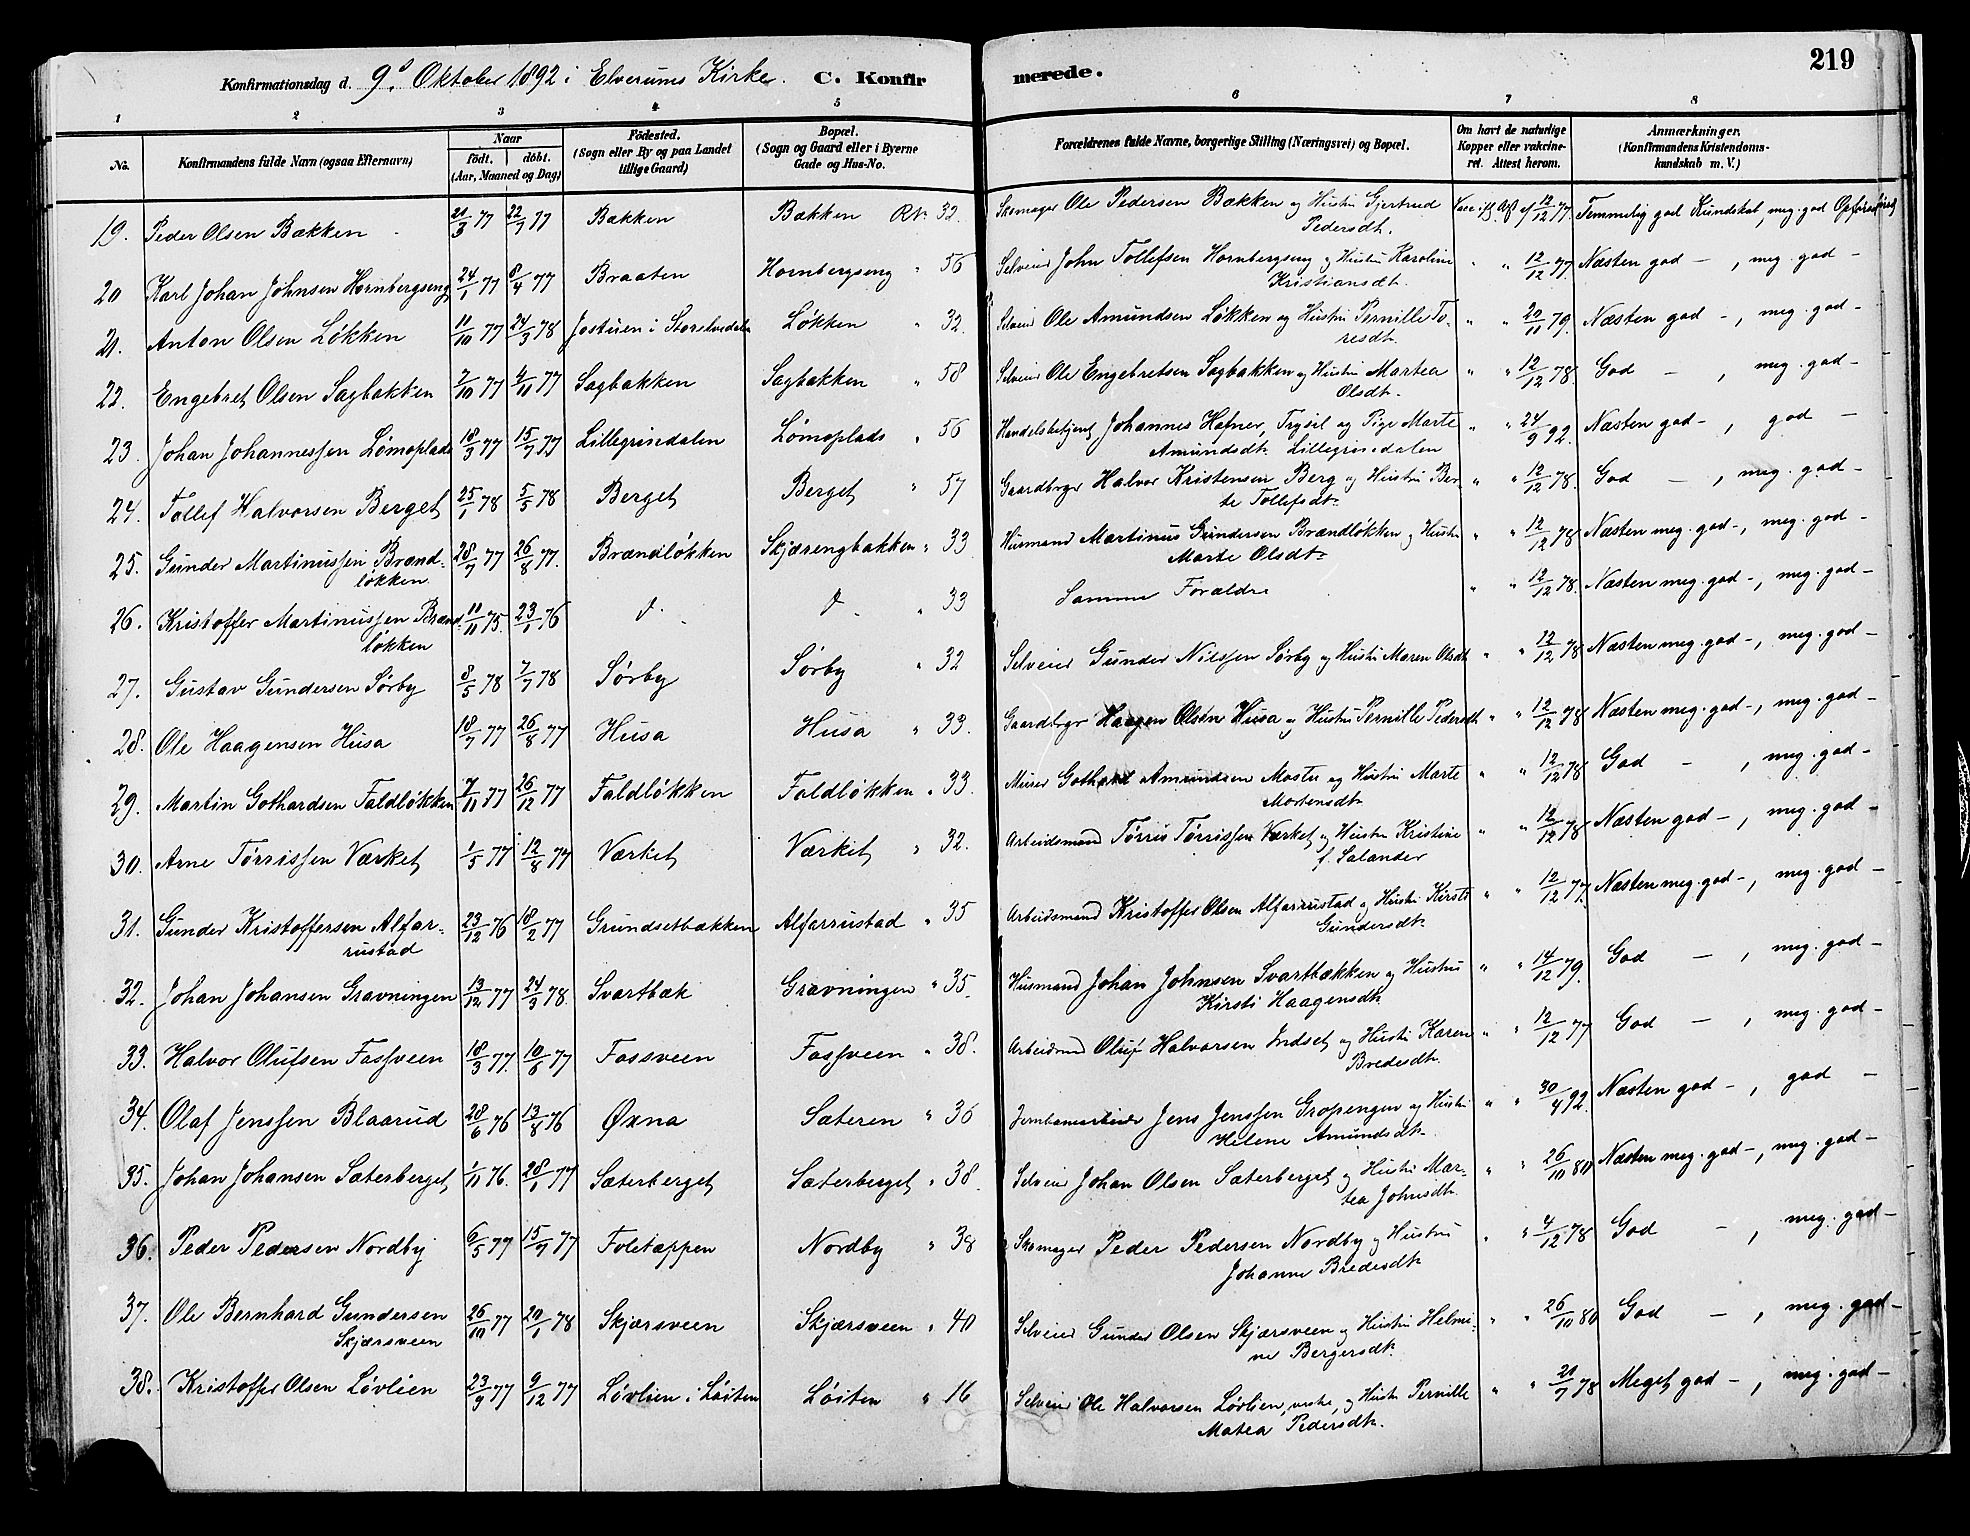 219
Konfirmationsdag d. 9de Oktober 1892 i Elverums Kirke. C. Konfirmerede.
1 2 3 4 5 6 7 8
No. Konfirmandens fulde Navn (ogsaa Efternavn) Naar födt. döbt. (Aar, Maaned og Dag) Födested. (Sogn eller By og paa Landet tillige Gaard) Bopæl. (Sogn og Gaard eller i Byerne Gade og Hus-No. Forældrenes fulde Navne, borgerlige Stilling (Næringsvei) og Bopæl. Om havt de naturlige Kopper eller vakcineret. Attest herom. Anmærkninger. (Konfirmandens Kristendomskundskab m. V.)
19. Peder Olsen Bakken 21/3 77 22/7 77 Bakken Bakken RN: 32. Skomager Ole Pedersen Bakken og Hustru Gjertrud Pedersdt. Vacc. ifg. Att. af 12/12 77. Temmelig god Kundskab, meg. god Opførsel
20 Karl Johan Johnsen Hornbergseng 24/1 77 8/4 77 Braaten Hornbergseng " 56 Selveier John Tollefsen Hornbergseng og Hustru Karoline Kristiansdt. " " 12/12 77. Næsten god –, meg. god –
21. Anton Olsen Løkken 11/10 77 24/3 78 Jostuen i Storelvedalen Løkken " 32. Selveier Ole Amundsen Løkken og Hustru Pernille Toresdt. " " 20/11 79. Næsten god –, meg. god –
22. Engebret Olsen Sagbakken 7/10 77 4/11 77 Sagbakken Sagbakken " 58 Selveier Ole Engebretsen Sagbakken og Hustru Martea Olsdt. " " 12/12 78. God –, meg. god –
23. Johan Johannessen Lømoplads 18/3 77 15/7 77 Lillegrisedalen Lømoplads " 56 Handelsbetjent Johannes Hafner, Trysil og Pige Marte Amundsdt. Lillegrisedalen " " 24/9 92. Næsten god –, god –
24. Tollef Halvorsen Berget 25/1 78 5/5 78 Berget Berget " 57 Gaardbrger Halvor Kristensen Berg og Hustru Berte Tollefsdt. " " 12/12 78. God –, meg. god –
25. Gunder Martinussen Brændløkken 28/7 77 26/8 77. Brændløkken Skjærengbakken " 33 Husmand Martinus Gundersen Brændløkken og Hustru Marte Olsdt. " " 12/12 78 Næsten meg. god –, meg. god –
26. Kristoffer Martinussen Brændløkken 11/11 75. 23/1 76 d. d. " 33 Samme Forældre " " 12/12 78. Næsten meg. god –, meg. god –
27. Gustav Gundersen Sørby 8/5 78 7/7 78 Sørby Sørby " 32 Selveier Gunder Nilssen Sørby og Hustru Maren Olsdt " " 12/12 78 Næsten meg. god –, meg. god –
28. Ole Haagensen Husa 18/7 77 26/8 77 Husa Husa " 33. Gaardbrgr Haagen Olsen Husa og Hustru Pernille Pedersdt " " 12/12 78 Næsten meg. god –, meg. god –
29. Martin Gothardsen Faldløkken 7/11 77 26/12 77 Faldløkken Faldløkken " 33. Murer Gothard Amundsen Mostu og Hustru Marte Mortensdt. " " 12/12 78 God –, meg. god –
30. Arne Tørrissen Værket 1/5 77 12/8 77 Værket Værket " 32. Arbeidsmand Tørris Tørrissen Værket og Hustru Kristine f. Salander " " 12/12 78 Næsten god –, meg. god –
31. Gunder Kristoffersen Alfarrustad 23/12 76 18/2 77 Grundsetbakken Alfarrustad " 35 Arbeidsmand Kristoffer Olsen Alfarrustad og Hustru Kirsti Gundersdt. " " 12/12 77. Næsten meg. god –, meg. god –
32. Johan Johansen Gravningen 13/12 77 24/3 78. Svartbæk Gravningen " 35. Husmand Johan Johnsen Svartbækken og Hustru Kirsti Haagensdt. " " 14/12 79. God –, meg. god –
33. Halvor Olufsen Fossveen 18/3 77. 10/6 77 Fossveen Fossveen " 38. Arbeidsmd Oluf Halvorsen Indset og Hustru Karen Bredesdt. " " 12/12 77 God –, meg. god –
34. Olaf Jenssen Blaarud 28/6 76 13/8 76 Øxna Sæteren " 36 Jernbanearbeider Jens Jenssen Gropengen og Hustru Helene Amundsdt. " " 30/4 92. Næsten god –, god –
35. Johan Johansen Sæterberget 1/11 76. 28/1 77 Sæterberget Sæterberget " 38. Selveier Johan Olsen Sæterberget og Hustru Martea Johnsdt. " " 26/10 80 Næsten meg. god –, meg. god –
36. Peder Pedersen Nordby 6/5 77 15/7 77 Foletappen Nordby " 38 Skomager Peder Pedersen Nordby og Hustru Johanne Bredesdt. " " 4/12 78 God –, meg. god –
37. Ole Bernhard Gundersen Skjærsveen 26/10 77 20/1 78 Skjærsveen Skjærsveen " 40 Selveier Gunder Olsen Skjærsveen og Hustru Helmine Bergersdt. " " 26/10 80 God –, meg. god –
38. Kristoffer Olsen Løvlien 23/9 77 9/12 77 Løvlien i Løiten Løiten " 16 Selveier Ole Halvorsen Løvlien, vestre, og Hustru Pernille Matea Pedersdt. " " 21/7 78 Meget god –, meg. god –